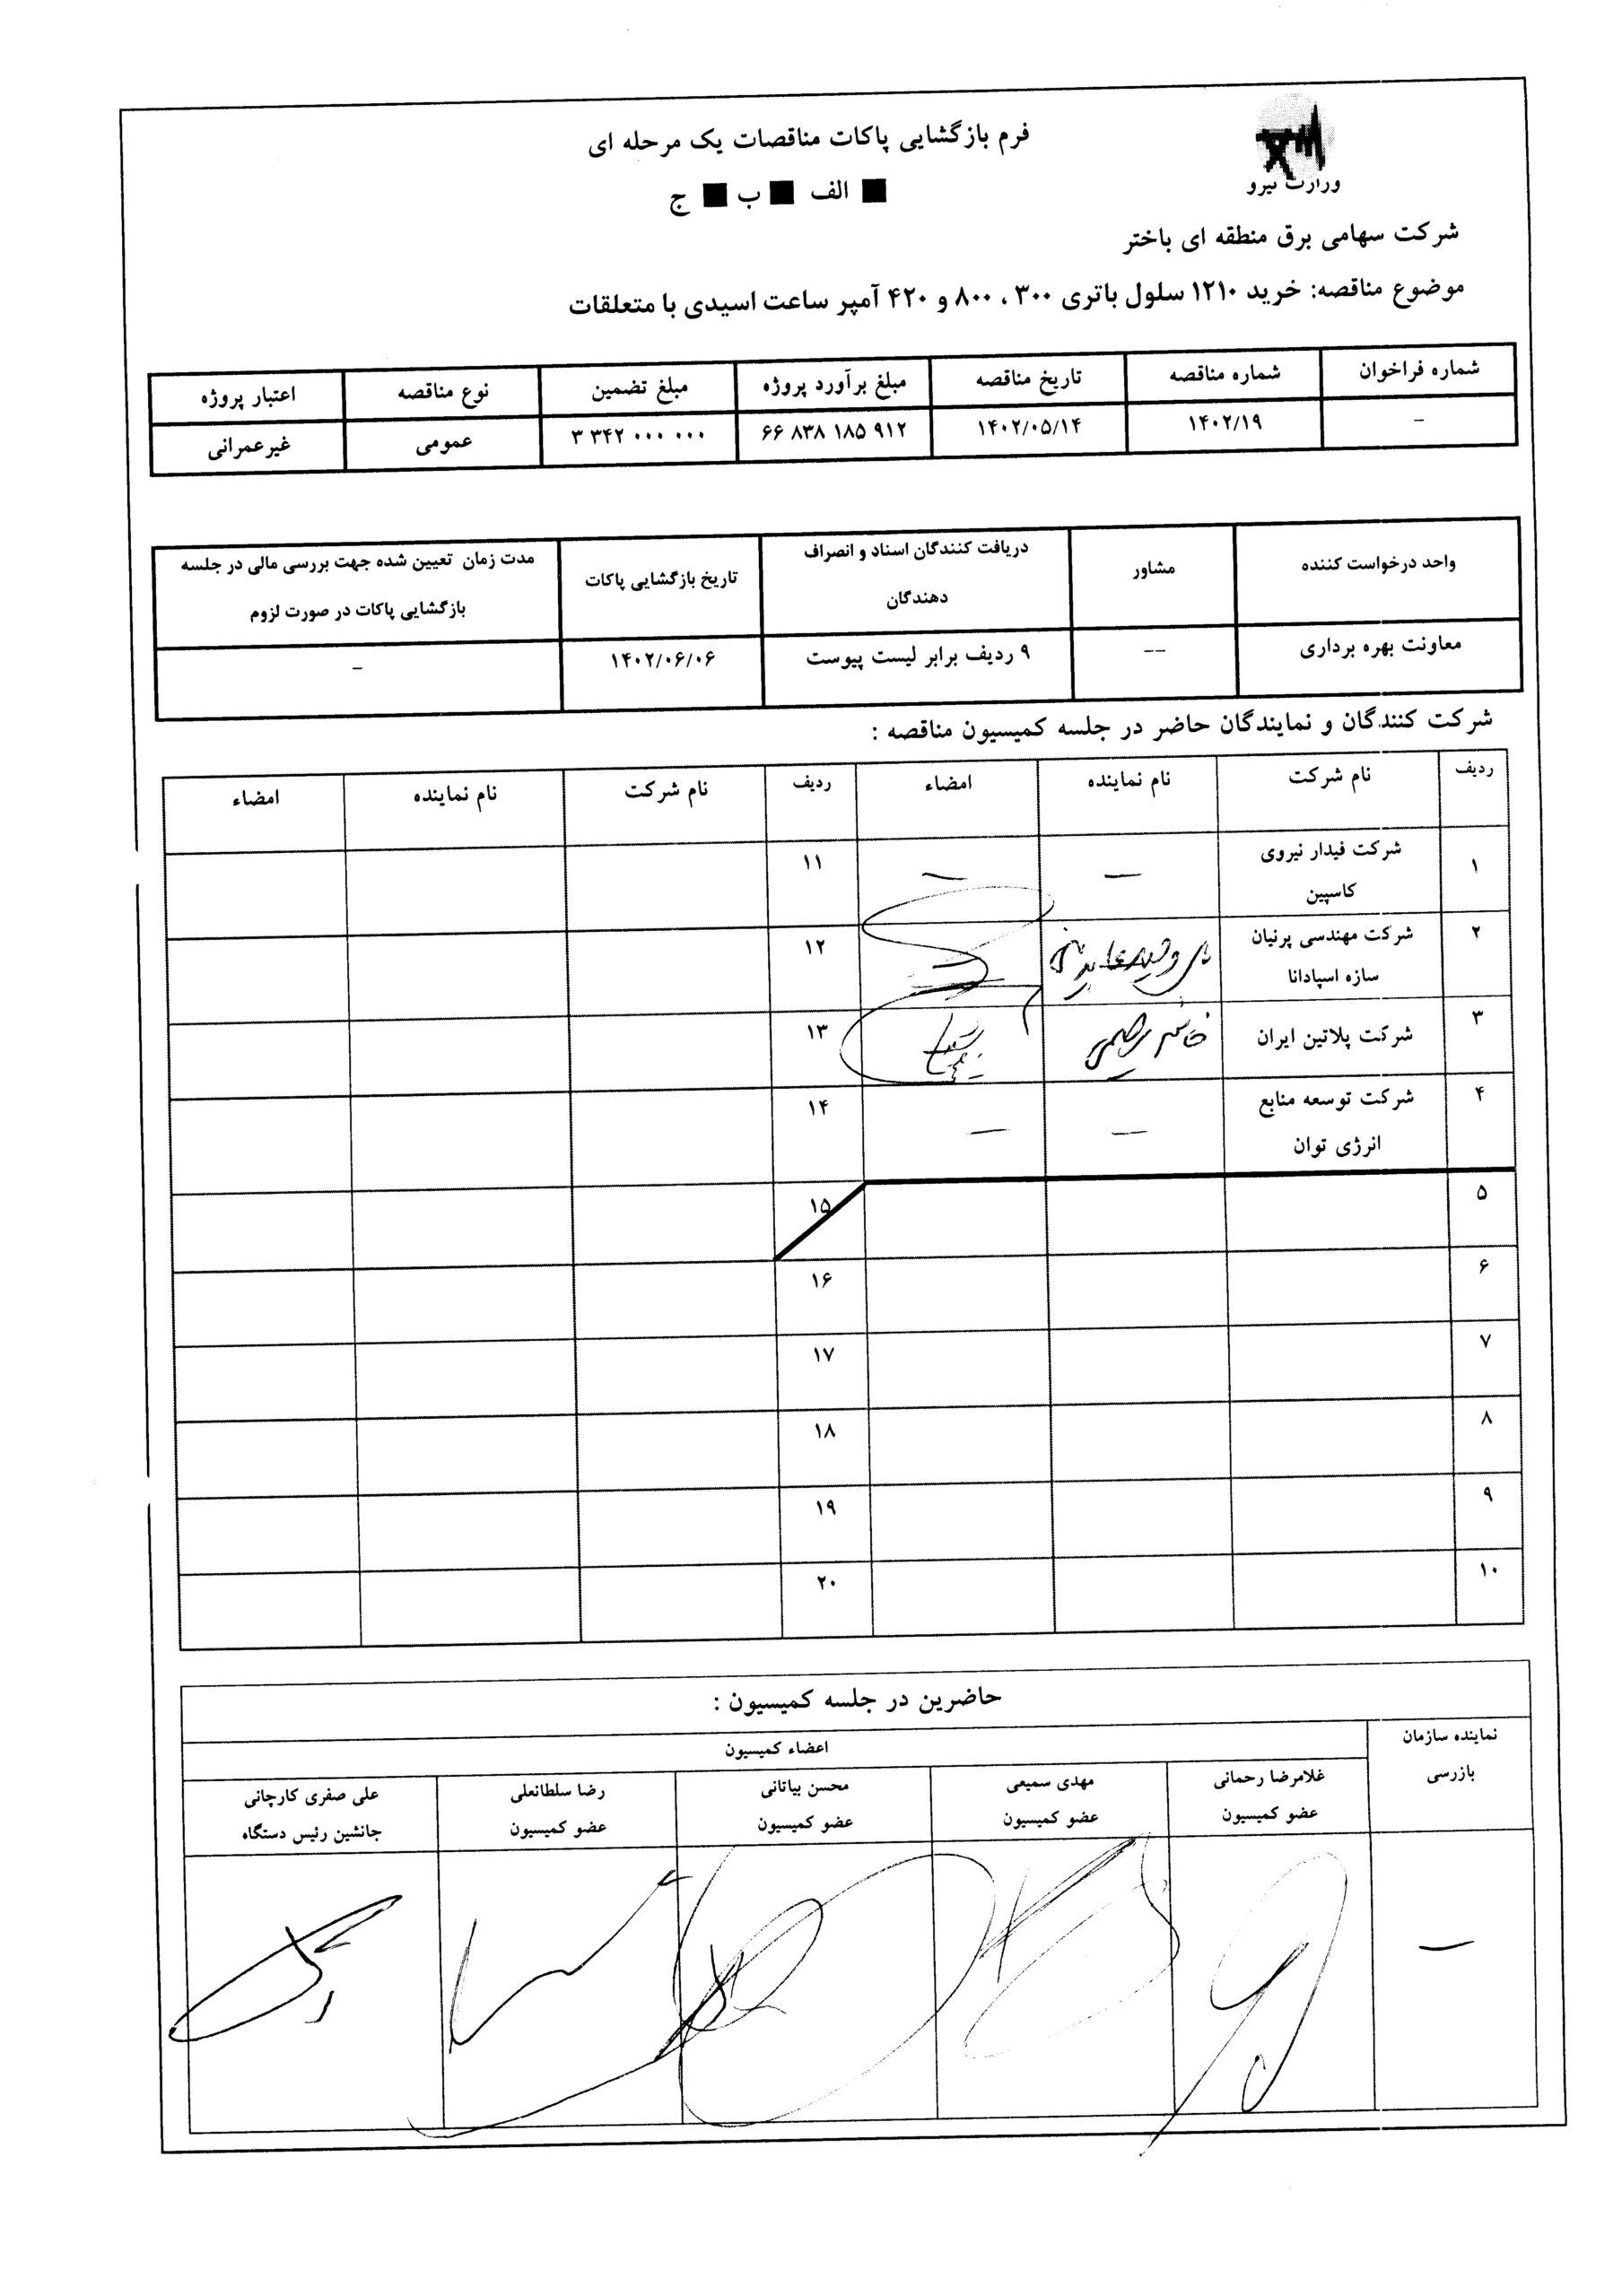 وزارت نیرو
فرم بازگشایی پاکات مناقصات یک مرحله ای
■ الف ■ ب ■ ج
شرکت سهامی برق منطقه ای باختر
موضوع مناقصه: خرید ۱۲۱۰ سلول باتری ۳۰۰ ، ۸۰۰ و ۴۲۰ آمپر ساعت اسیدی با متعلقات
شماره فراخوان شماره مناقصه تاریخ مناقصه مبلغ برآورد پروژه مبلغ تضمین نوع مناقصه اعتبار پروژه
– ۱۴۰۲/۱۹ ۱۴۰۲/۰۵/۱۴ ۶۶ ۸۳۸ ۱۸۵ ۹۱۲ ۳ ۳۴۲ ۰۰۰ ۰۰۰ عمومی غیرعمرانی
واحد درخواست کننده
مشاور
دریافت کنندگان اسناد و انصراف
دهندگان
تاریخ بازگشایی پاکات
مدت زمان تعیین شده جهت بررسی مالی در جلسه
بازگشایی پاکات در صورت لزوم
معاونت بهره برداری -- ۹ ردیف برابر لیست پیوست ۱۴۰۲/۰۶/۰۶ –
شرکت کنندگان و نمایندگان حاضر در جلسه کمیسیون مناقصه :
ردیف نام شرکت نام نماینده امضاء ردیف نام شرکت نام نماینده امضاء
۱
شرکت فیدار نیروی
کاسپین
— —
۱۱
۲
شرکت مهندسی پرنیان
سازه اسپادانا
۱۲
۳ شرکت پلاتین ایران
۱۳
۴
شرکت توسعه منابع
انرژی توان
— —
۱۴
۵ ۱۵
۶ ۱۶
۷ ۱۷
۸ ۱۸
۹ ۱۹
۱۰ ۲۰
حاضرین در جلسه کمیسیون :
نماینده سازمان
بازرسی
اعضاء کمیسیون
غلامرضا رحمانی
عضو کمیسیون
مهدی سمیعی
عضو کمیسیون
محسن بیاتانی
عضو کمیسیون
رضا سلطانعلی
عضو کمیسیون
علی صفری کارچانی
جانشین رئیس دستگاه
—